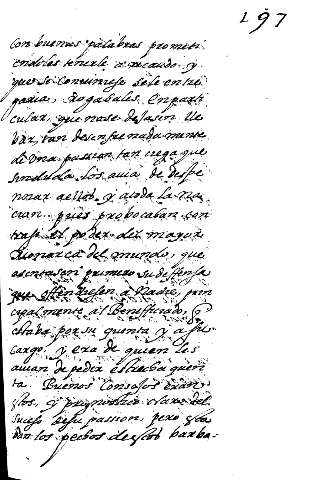 197
con buenas palabras prometi
endoles tenerle a recaudo y
que si conuiniese se le entre
garia, Rogabales en parti
cular, que no se dejasen lle
bar, tan desenfrenadamente
de una passion tan ciega que
sin duda los auia de despe
nar a ellos y a toda la na
cion. pues probocaban con
tra si el poder del mayor
Monarca del mundo, que
asentasen primero su deffensa
offendiesen a nadie, prin
cipalmente al Benefficiado, q
estaba por su quenta y a su
cargo, y era de quien les
auian de pedir estrecha quen
ta. Buenos consejos eran
estos, y pronostico claro del
sucesso de su passion, pero esta
ban los pechos de estos barba-